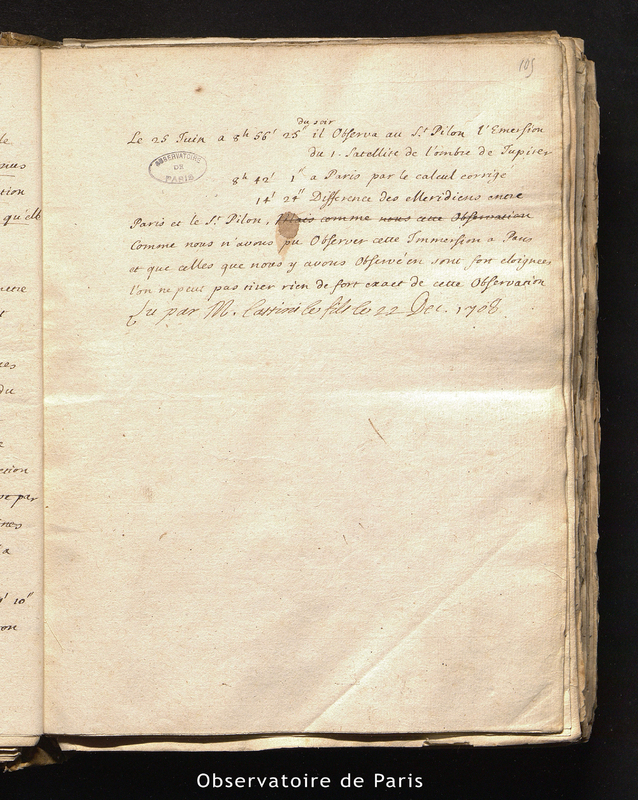 105
du soir
Le 25 Juin a 8h 56' 25" il Observa au St Pilon l'Emersion
du 1. Satellite de l'ombre de Jupiter
8h 42' 1" a Paris par le calcul corrige
14' 24" Difference des Meridiens entre
Paris et le St Pilon, Mais comme nous cette Observation
Comme nous n'avons pu Observer cette Immersion a Paris
et que celles que nous y avons Observé en sont fort eloignees
l'on ne peut pas tirer rien de fort exact de cette Observation
Lu par M. Cassini le fils le 22 Dec. 1708
OBSERVATOIRE
DE
PARIS
qu'elle
du
par
a
10"
Observatoire de Paris